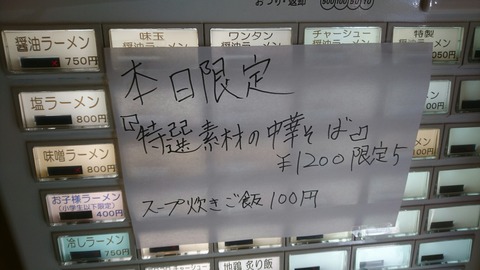 おつり・返却
500 100 50 10
醤油ラーメン
750円
味玉
醤油ラーメン
ワンタン
醤油ラーメン
チャーシュー
醤油ラーメン
特製
塩ラーメン
800円
味噌ラーメン
800円
お子様ラーメン
(小学生以下限定)
400円
冷しラーメン
750円
地鶏 炙り飯
本日限定
『特選素材の中華そば』
¥1200 限定5
スープ炊きご飯 100円